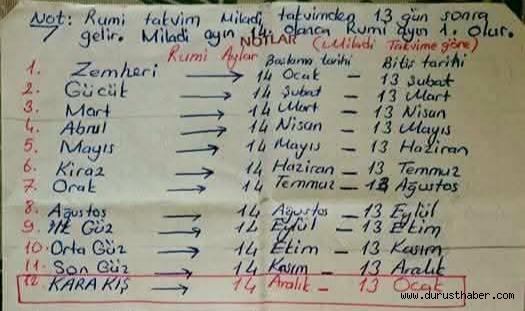 Not: Rumi takvim Miladi takvimden 13 gün sonra
gelir. Miladi ayın 14 olunca Rumi ayın 1. olur.
NOTLAR
Rumi Aylar (Miladi Takvime göre)
Başlama tarihi Bitiş tarihi
1. Zemheri → 14 Ocak - 13 Şubat
2. Gücük → 14 Şubat - 13 Mart
3. Mart → 14 Mart - 13 Nisan
4. Abrul → 14 Nisan - 13 Mayıs
5. Mayıs → 14 Mayıs - 13 Haziran
6. Kiraz → 14 Haziran - 13 Temmuz
7. Orak → 14 Temmuz - 13 Ağustos
8. Ağustos → 14 Ağustos - 13 Eylül
9. İlk Güz → 14 Eylül - 13 Ekim
10. Orta Güz → 14 Ekim - 13 Kasım
11. Son Güz → 14 Kasım - 13 Aralık
12. KARA KIŞ → 14 Aralık - 13 Ocak
www.durusthaber.com